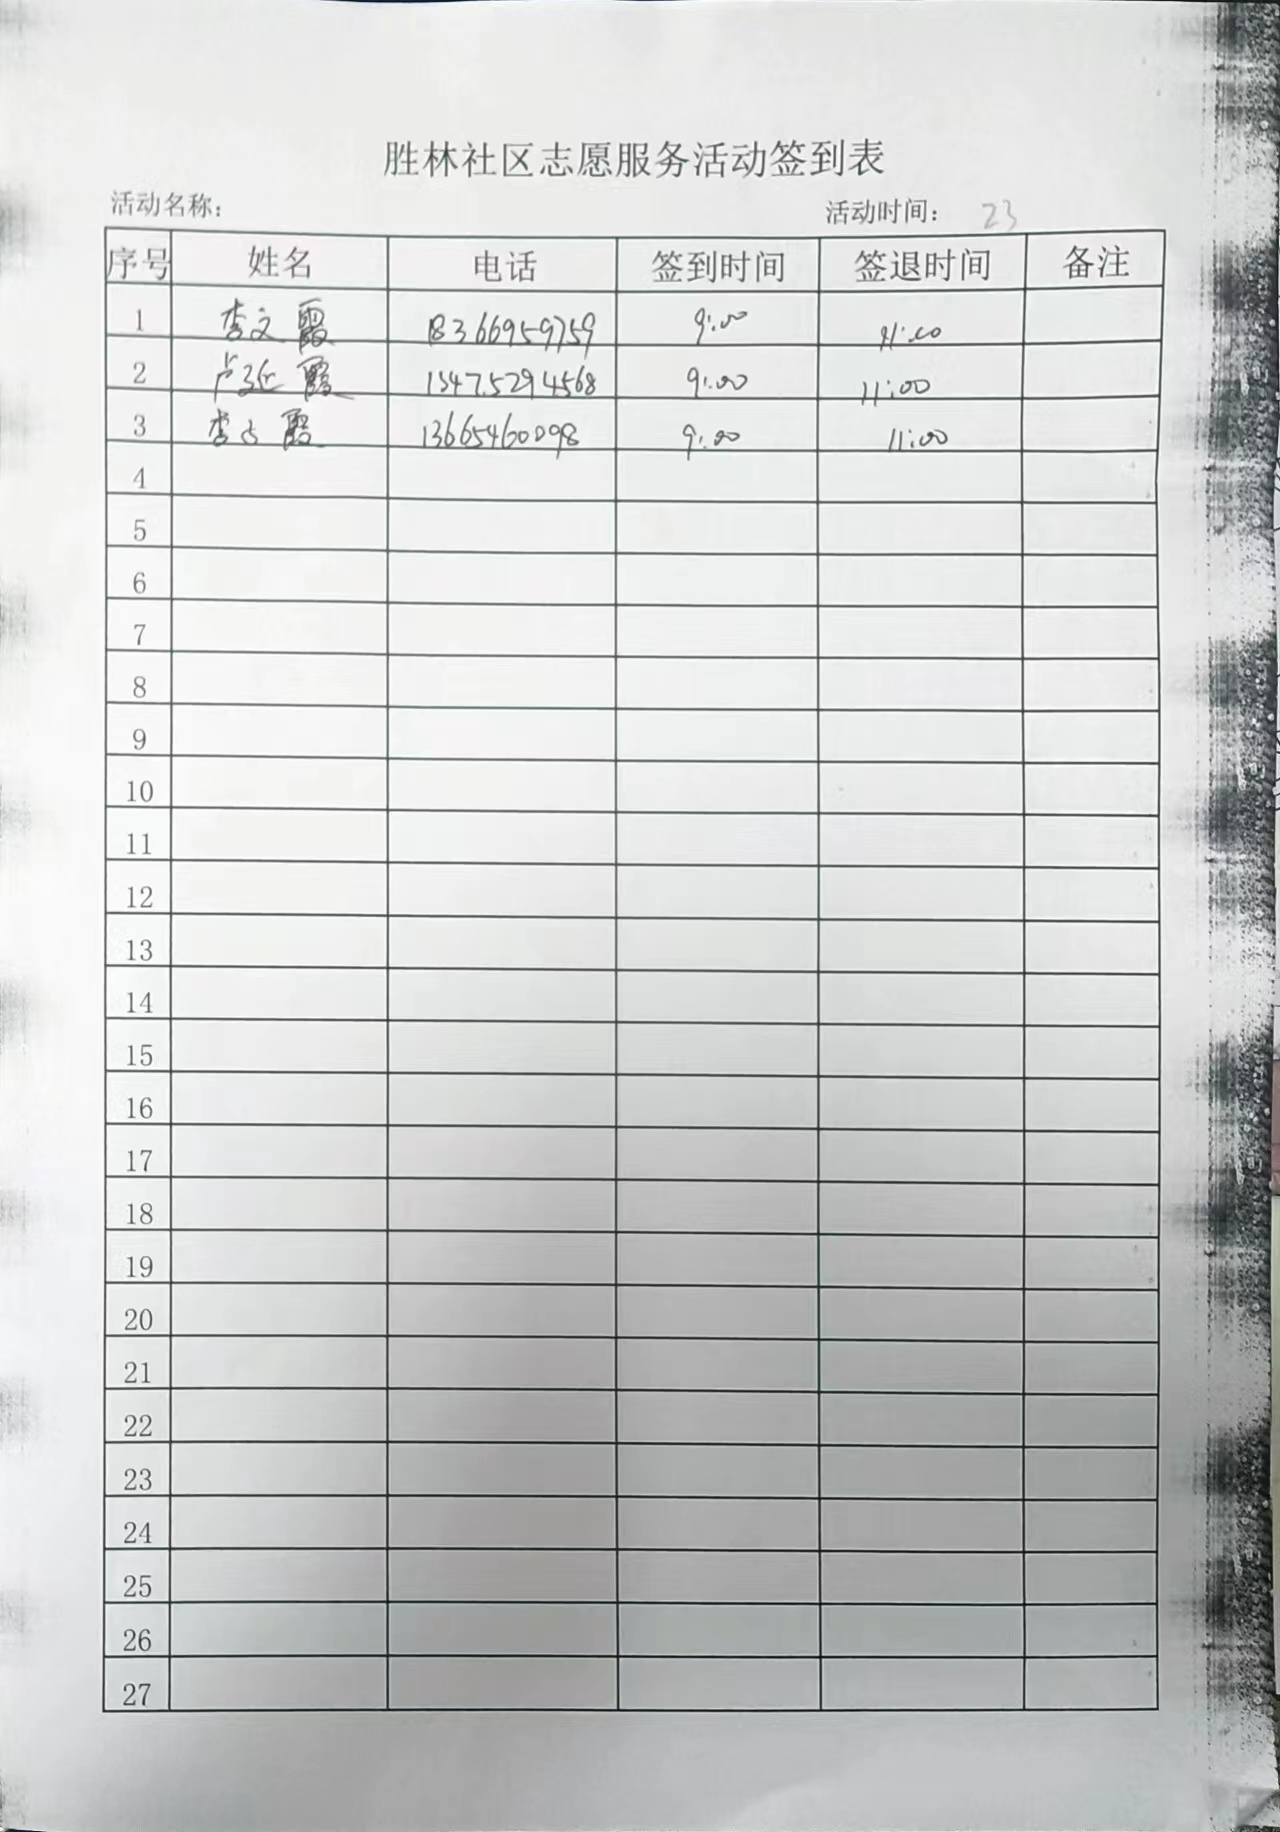 胜林社区志愿服务活动签到表
活动名称: 活动时间: 23
序号 姓名 电话 签到时间 签退时间 备注
1 李文霞 18366959759 9:00 11:00
2 卢延霞 15475294568 9:00 11:00
3 李占霞 13665460098 9:00 11:00
4
5
6
7
8
9
10
11
12
13
14
15
16
17
18
19
20
21
22
23
24
25
26
27